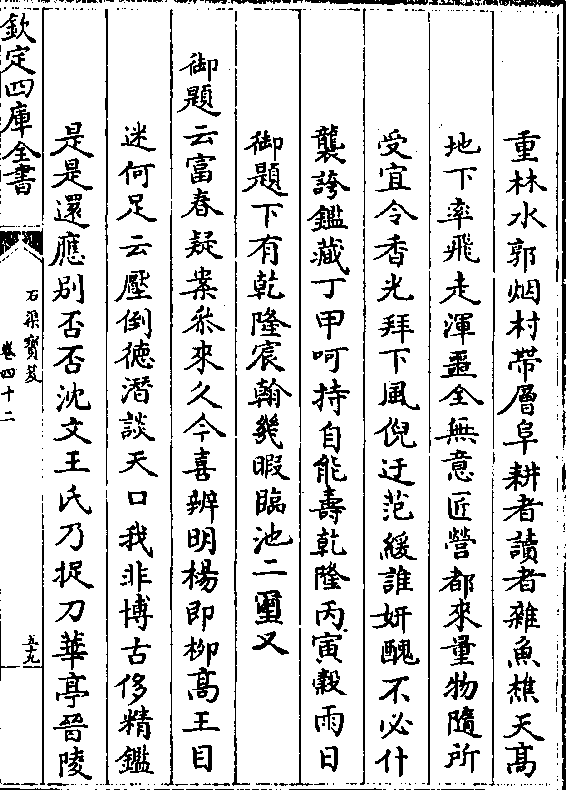 重林水郭烟村帶層阜耕者讀者雜魚樵天高
地下率飛走渾噩全無意匠營都來量物隨所
受宜令香光拜下風倪迂范緩誰妍醜不必什
襲誇鑑藏丁甲呵持自能壽乾隆丙寅穀雨日
御題下有乾隆宸翰幾暇臨池二璽又
御題云富春疑案叅來久今喜辨明楊即栁髙王目
迷何足云壓倒徳潛談天口我非博古侈精鑑
是是還應别否否沈文王氏乃捉刀華亭晉陵
欽定四庫全書
石渠寳笈
卷四十二
五十九